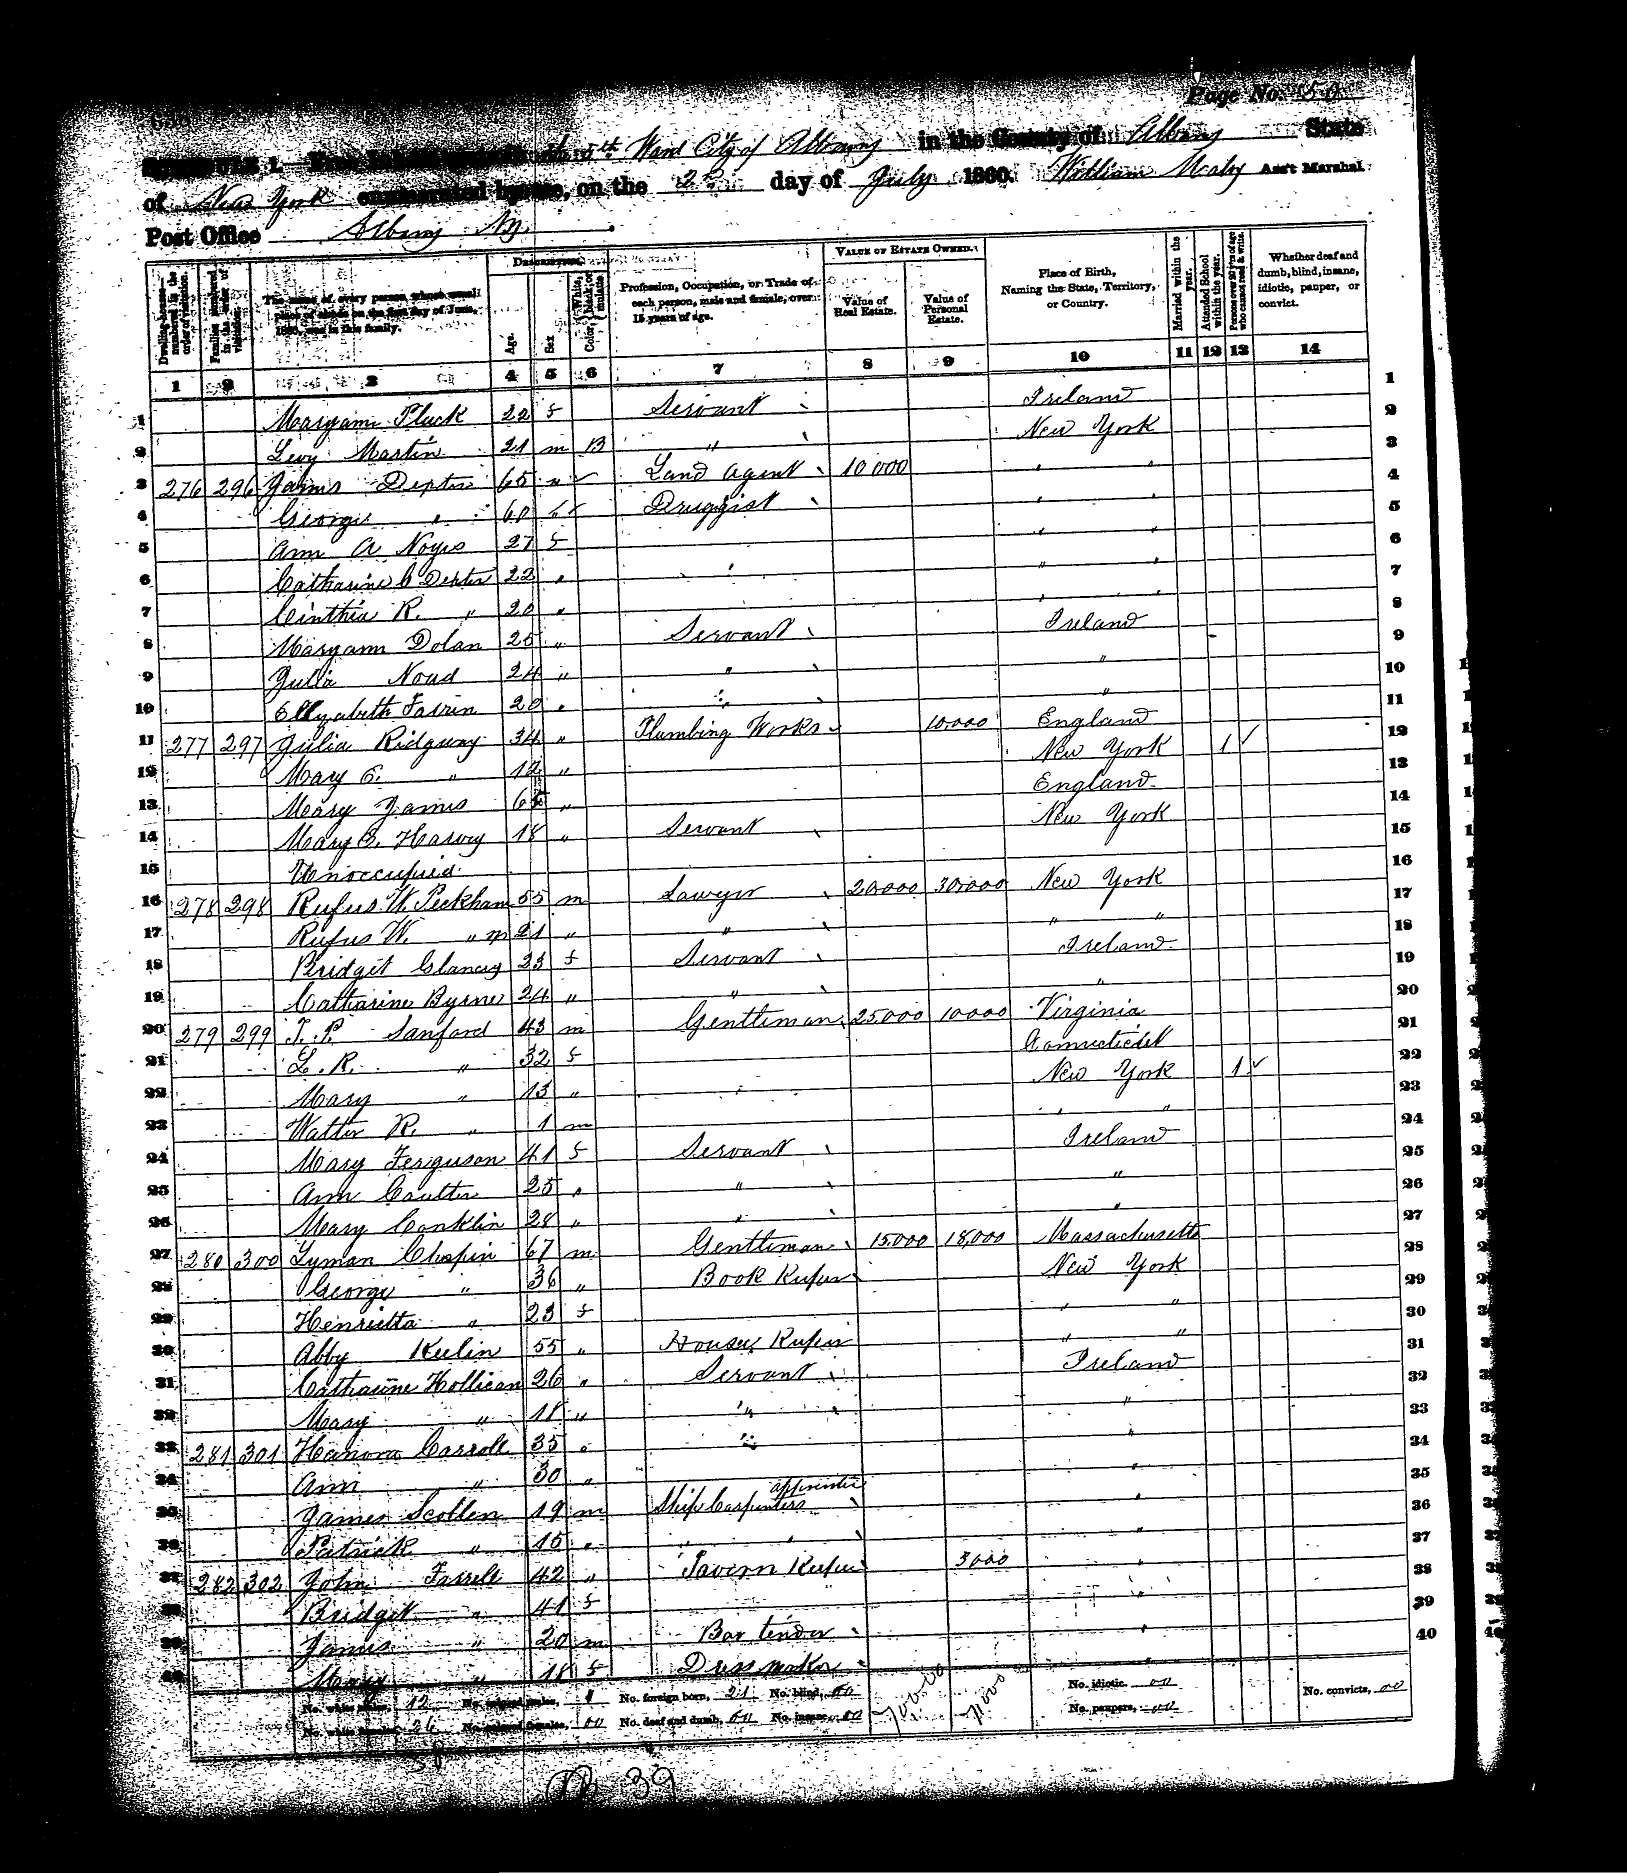 Page No. 50
SCHEDULE 1. 5th Ward City of Albany in the County of Albany State
of New York enumerated by me, on the 2d day of July 1860. William Mealy Ass't Marshal.
Post Office Albany Ny.
Dwelling-houses—numbered in the order of visitation. Families numbered in the order of visitation. The name of every person whose usual place of abode on the first day of June, 1860, was in this family. Description. Age. Sex Color, White, black or mulatto. Profession, Occupation, or Trade of each person, male and female, over 15 years of age. Value of Estate Owned. Value of Real Estate. Value of Personal Estate. Place of Birth, Naming the State, Territory, or Country. Married within the year. Attended School within the year. Persons over 20 y'rs of age who cannot read & write. Whether deaf and dumb, blind, insane, idiotic, pauper, or convict.
1 2 3 4 5 6 7 8 9 10 11 12 13 14
1 Maryann Pluck 22 f Servant Ireland 1
2 Levy Martin 21 m B " New York 2
3 276 296 James Dexter 65 " Land Agent 10000 " " 3
4 George " 60 " Druggist " " 4
5 Ann A Noyes 27 f " " 5
6 Catharine C Dexter 22 " " " 6
7 Cinthia R. " 20 " " " 7
8 Maryann Dolan 25 " Servant Ireland 8
9 Julia Noud 24 " " " 9
10 Ellyzabeth 20 " " " 10
11 277 297 Julia Ridgway 34 " Plumbing Works 10,000 England 11
12 Mary E. " 12 " New York 1 12
13 Mary James 65 " England 13
14 Mary E. Harvy 18 " Servant New York 14
15 Unoccupied 15
16 278 298 Rufus W. Peckham 55 m Lawyer 20,000 30,000 New York 16
17 Rufus W. " 21 " " " " 17
18 Bridget Clancy 23 f Servant Ireland 18
19 Catharine Byrne 24 " " " 19
20 279 299 Sanford 43 m Gentleman 25,000 10,000 Virginia 20
21 L. R. " 32 f Connecticut 21
22 Mary " 13 " New York 1 22
23 Walter R. " 1 m " " 23
24 Mary Ferguson 41 f Servant Ireland 24
25 Ann Coulter 25 " " " 25
26 Mary Conklin 28 " " " 26
27 280 300 Lyman Chapin 67 m Gentleman 15,000 18,000 Massachusetts 27
28 George " 36 " Book Keeper New York 28
29 Henrietta " 23 f " " 29
30 Abby Keelin 55 " House Keeper " " 30
31 Catharine Hollican 26 " Servant Ireland 31
32 Mary " 18 " " " 32
33 281 301 Hanora Carroll 35 " " " 33
34 Ann " 30 " " 34
35 James Scollen 19 m Ship Carpenters apprentice " 35
36 Patrick " 15 " " " " 36
37 282 302 John Farrell 42 " Tavern Keeper 3000 " 37
38 Bridget " 41 f " 38
39 James " 20 m Bar tender " 39
40 Mary " 18 f Dress maker 40
No. white males, 12 No. colored males, 1 No. foreign born, 21 No. blind, 00 No. idiotic, 00 No. convicts, 00
No. white females, 26 No. colored females, 00 No. deaf and dumb, 00 No. insane, 00 70,000 71,000 No. paupers, 00
39